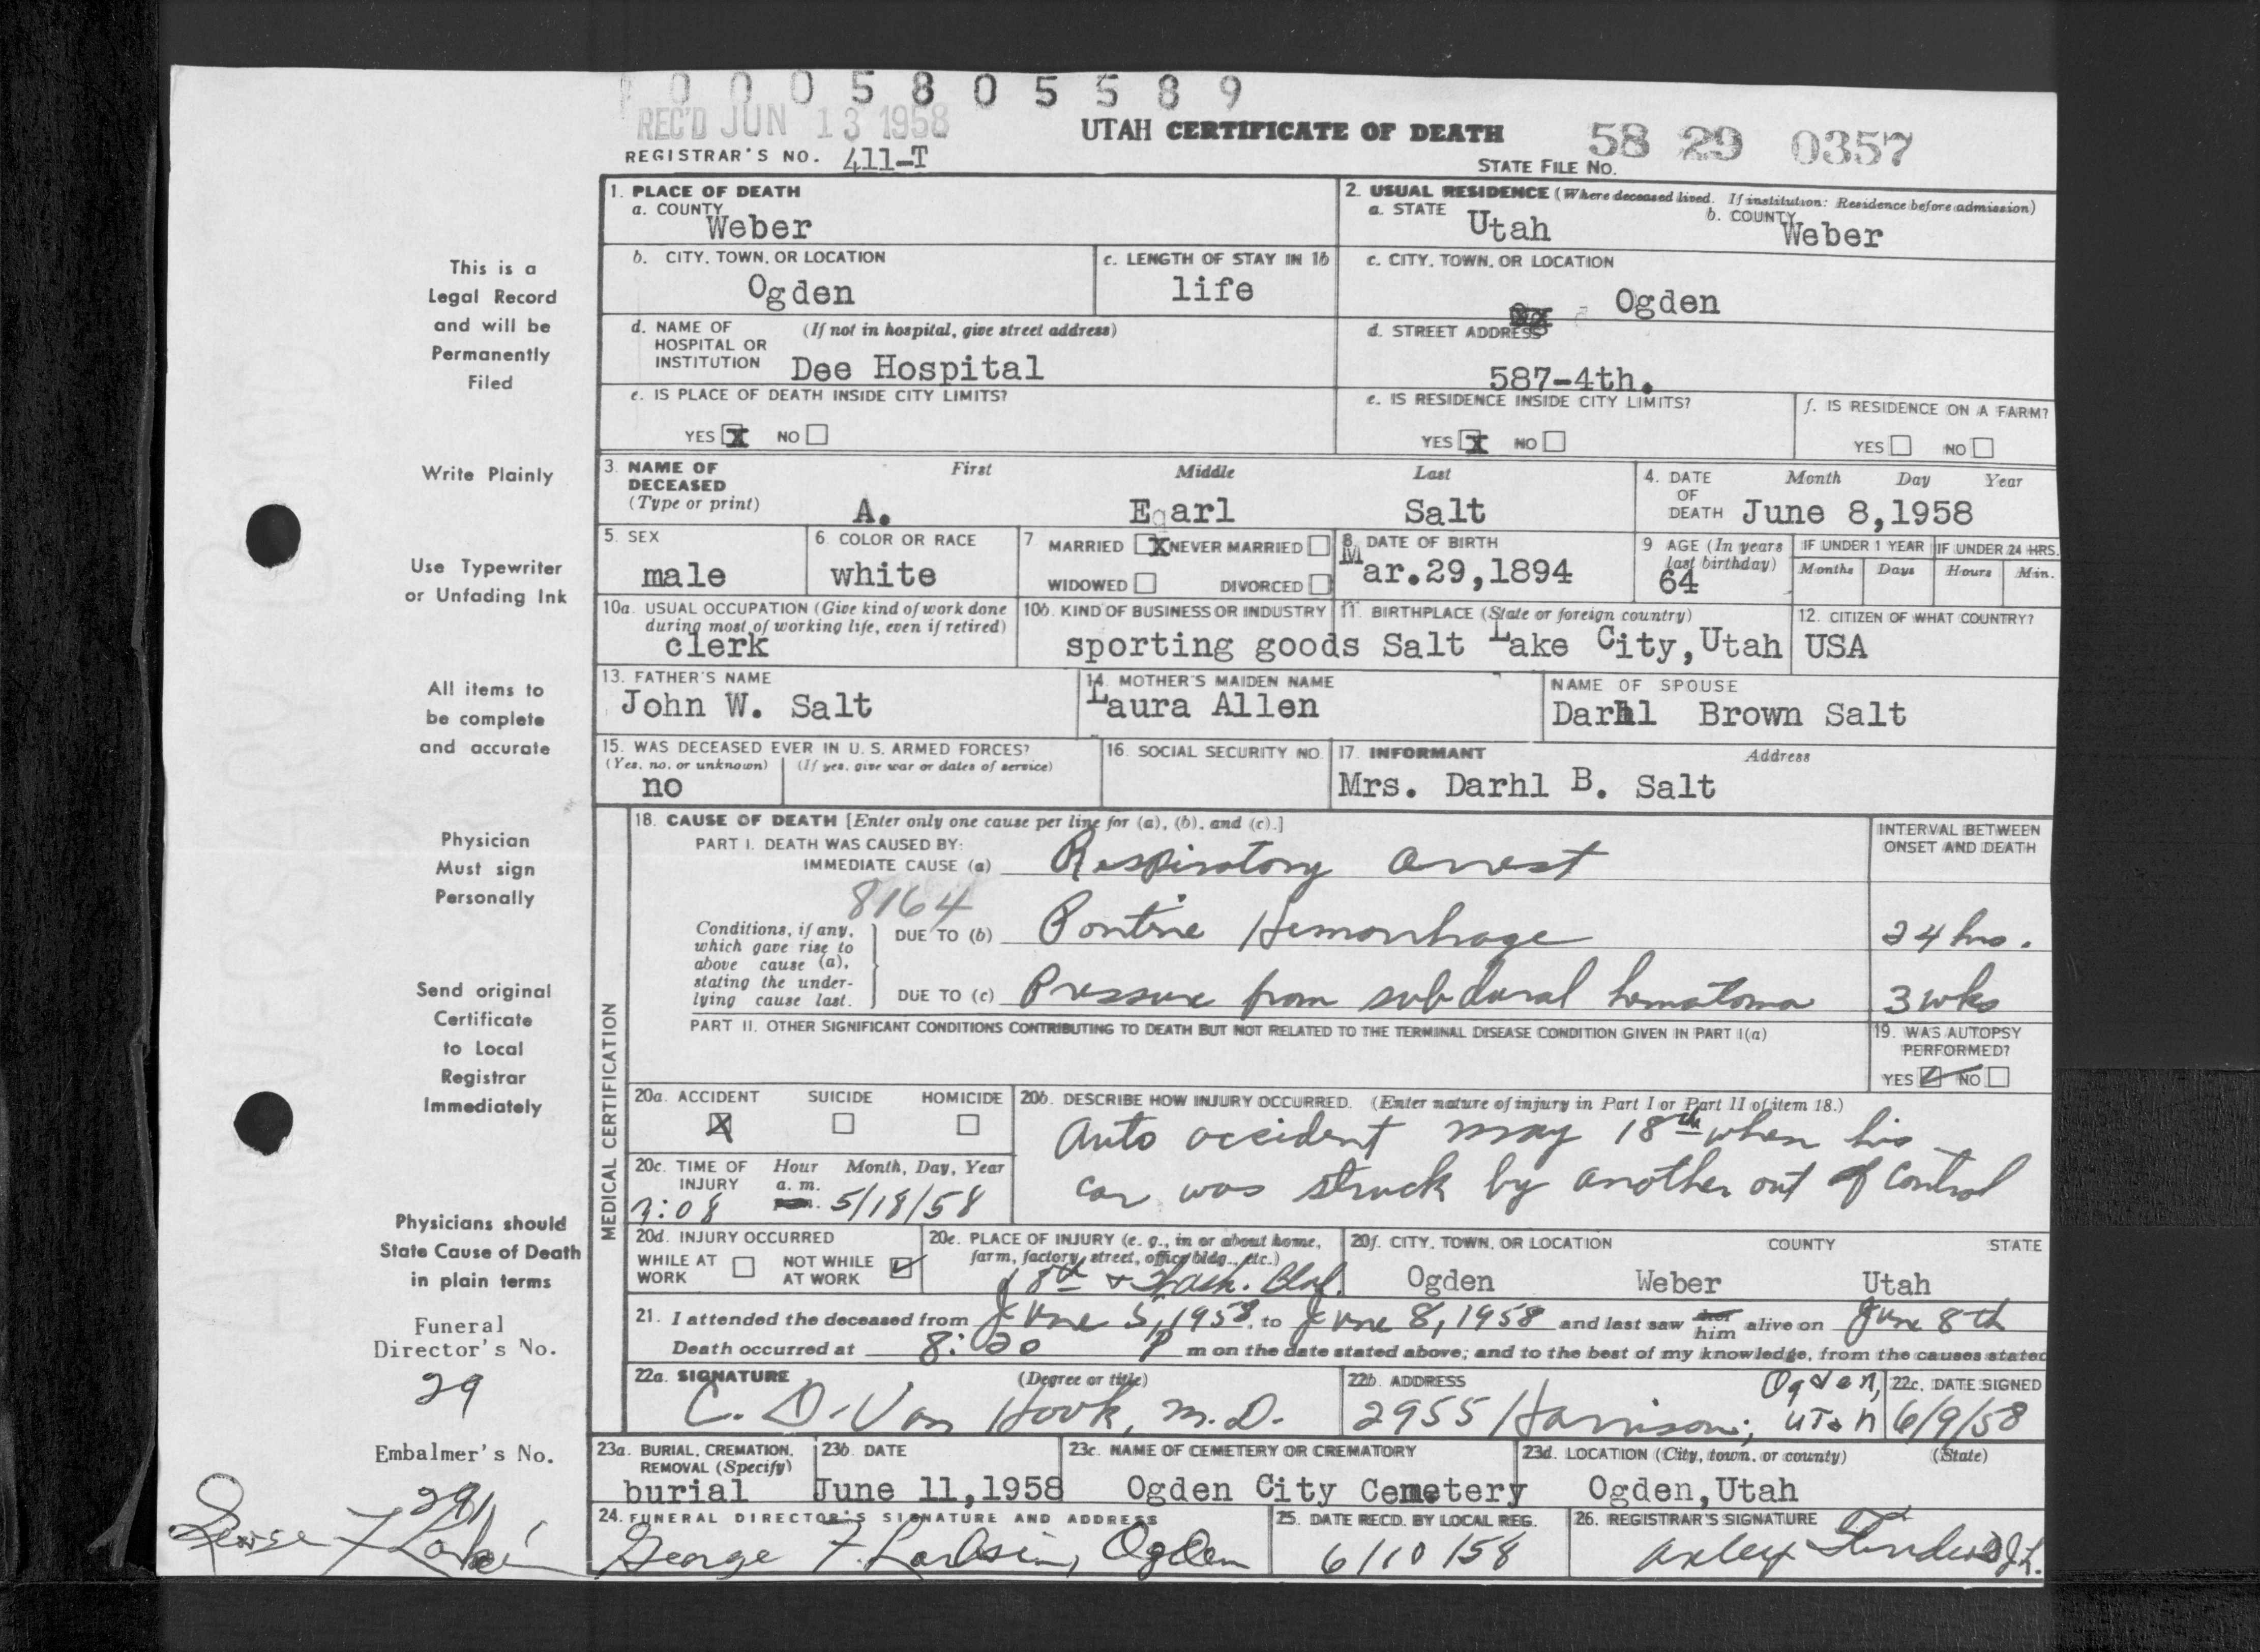 0 0 0 5 8 0 5 5 8 9
REC'D JUN 13 1958
UTAH CERTIFICATE OF DEATH
58 29 0357
REGISTRAR'S NO. 411-T
STATE FILE NO.
This is a
Legal Record
and will be
Permanently
Filed
Write Plainly
Use Typewriter
or Unfading Ink
All items to
be complete
and accurate
Physician
Must sign
Personally
Send original
Certificate
to Local
Registrar
Immediately
Physicians should
State Cause of Death
in plain terms
Funeral
Director's No.
29
Embalmer's No.
291
George F Larkin
1. PLACE OF DEATH
a. COUNTY
Weber
2. USUAL RESIDENCE (Where deceased lived. If institution: Residence before admission)
a. STATE Utah b. COUNTY Weber
b. CITY, TOWN, OR LOCATION
Ogden
c. LENGTH OF STAY IN 1b
life
c. CITY, TOWN, OR LOCATION
Ogden
d. NAME OF (If not in hospital, give street address)
HOSPITAL OR
INSTITUTION Dee Hospital
d. STREET ADDRESS
587-4th.
e. IS PLACE OF DEATH INSIDE CITY LIMITS?
YES X NO
e. IS RESIDENCE INSIDE CITY LIMITS?
YES X NO
f. IS RESIDENCE ON A FARM?
YES NO
3. NAME OF DECEASED (Type or print)
First Middle Last
A. Earl Salt
4. DATE OF DEATH Month Day Year
June 8,1958
5. SEX
male
6. COLOR OR RACE
white
7 MARRIED X NEVER MARRIED
WIDOWED DIVORCED
8. DATE OF BIRTH
Mar.29,1894
9 AGE (In years last birthday)
64
IF UNDER 1 YEAR IF UNDER 24 HRS.
Months Days Hours Min.
10a. USUAL OCCUPATION (Give kind of work done
during most of working life, even if retired)
clerk
10b. KIND OF BUSINESS OR INDUSTRY
sporting goods
11. BIRTHPLACE (State or foreign country)
Salt Lake City,Utah
12. CITIZEN OF WHAT COUNTRY?
USA
13. FATHER'S NAME
John W. Salt
14. MOTHER'S MAIDEN NAME
Laura Allen
NAME OF SPOUSE
Darhl Brown Salt
15. WAS DECEASED EVER IN U. S. ARMED FORCES?
(Yes, no, or unknown) (If yes, give war or dates of service)
no
16. SOCIAL SECURITY NO.
17. INFORMANT Address
Mrs. Darhl B. Salt
MEDICAL CERTIFICATION
18. CAUSE OF DEATH [Enter only one cause per line for (a), (b), and (c).]
INTERVAL BETWEEN
ONSET AND DEATH
PART I. DEATH WAS CAUSED BY:
IMMEDIATE CAUSE (a) Respiratory arrest
8164
Conditions, if any,
which gave rise to
above cause (a),
stating the under-
lying cause last.
DUE TO (b) Pontine Hemorrhage 24 hrs.
DUE TO (c) Pressure from subdural hematoma 3 wks
PART II. OTHER SIGNIFICANT CONDITIONS CONTRIBUTING TO DEATH BUT NOT RELATED TO THE TERMINAL DISEASE CONDITION GIVEN IN PART I(a)
19. WAS AUTOPSY
PERFORMED?
YES NO
20a. ACCIDENT SUICIDE HOMICIDE
X
20b. DESCRIBE HOW INJURY OCCURRED. (Enter nature of injury in Part I or Part II of item 18.)
Auto accident may 18th when his
car was struck by another out of control
20c. TIME OF INJURY Hour Month, Day, Year
a. m.
:08 5/18/58
20d. INJURY OCCURRED
WHILE AT WORK NOT WHILE AT WORK
20e. PLACE OF INJURY (e. g., in or about home,
farm, factory, street, office bldg., etc.)
18th & Wash. Blvd.
20f. CITY, TOWN, OR LOCATION COUNTY STATE
Ogden Weber Utah
21. I attended the deceased from June 5, 1958, to June 8, 1958 and last saw her him alive on June 8th
Death occurred at 8:20 P m on the date stated above; and to the best of my knowledge, from the causes stated
22a. SIGNATURE (Degree or title)
C. D. Van Hook, M.D.
22b. ADDRESS
2955 Harrison, Ogden, Utah
22c. DATE SIGNED
6/9/58
23a. BURIAL, CREMATION,
REMOVAL (Specify)
burial
23b. DATE
June 11,1958
23c. NAME OF CEMETERY OR CREMATORY
Ogden City Cemetery
23d. LOCATION (City, town, or county) (State)
Ogden,Utah
24. FUNERAL DIRECTOR'S SIGNATURE AND ADDRESS
George F. Larkin, Ogden
25. DATE RECD. BY LOCAL REG.
6/10/58
26. REGISTRAR'S SIGNATURE